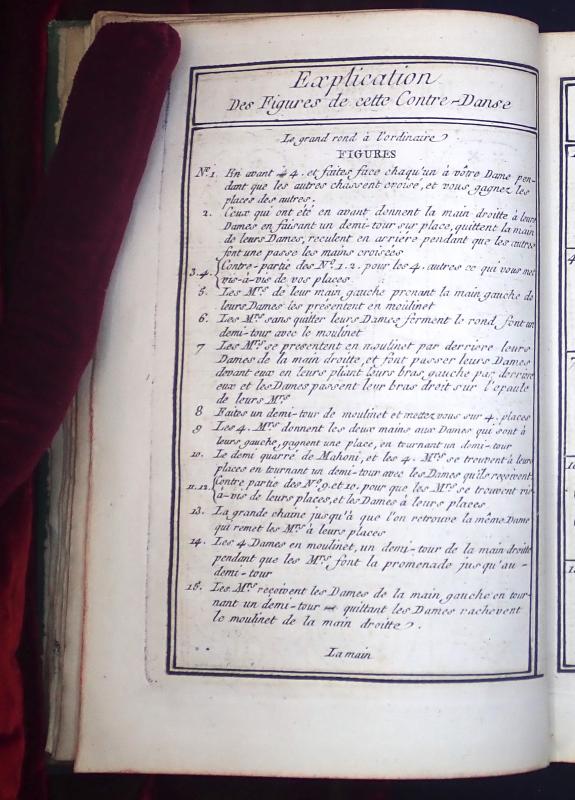 Explication
Des Figures de cette Contre-Danse
Le grand rond à l'ordinaire.
FIGURES
No. 1. En avant 4. et faites face chaqu'un à vôtre Dame pen-
dant que les autres chassent croisé, et vous gagnez les
places des autres.
2. Ceux qui ont été en avant donnent la main droitte à leurs
Dames en faisant un demi-tour sur place, quittent la main
de leurs Dames, reculent en arriére pendant que les autres
font une passe les mains croisées
3.4. Contre-partie des No. 1.2. pour les 4. autres ce qui vous met
vis-à-vis de vos places
5. Les Mrs. de leur main gauche prenant la main gauche de
leurs Dames les présentent en moulinet
6. Les Mrs sans quitter leurs Dames, forment le rond, font un
demi-tour avec le moulinet
7 Les Mrs se presentent en moulinet par derriere leurs
Dames de la main droitte, et font passer leurs Dames
devant eux en leurs pliant leurs bras gauche par derriere
eux et les Dames passent leur bras droit sur l'epaule
de leurs Mrs
8 Faites un demi-tour de moulinet et mettez vous sur 4. places
9 Les 4. Mrs donnent les deux mains aux Dames qui sont à
leurs gauche, gagnent une place, en tournant un demi-tour
10. Le demi quarré de Mahoni, et les 4. Mrs se trouvent à leurs
places en tournant un demi-tour avec les Dames qu'ils reçoivent
11.12. Contre partie des No. 9. et 10. pour que les Mrs se trouvent vis
à-vis de leurs places, et les Dames à leurs places
13. La grande chaine jusqu'à que l'on retrouve la même Dame
qui remet les Mrs à leurs places
14. Les 4 Dames en moulinet, un demi-tour de la main droitte
pendant que les Mrs font la promenade jusqu'au
demi-tour
15. Les Mrs reçoivent les Dames de la main gauche en tour-
nant un demi-tour quittant les Dames rachevent
le moulinet de la main droitte.
La main